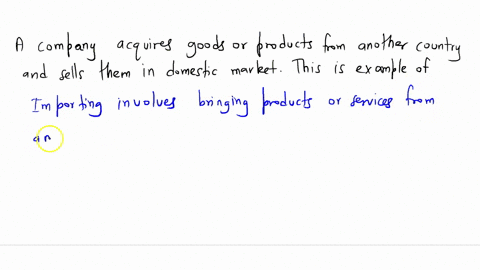 A company acquires goods or products from another country
and sells them in domestic market. This is example of
Importing involves bringing products or services from
an